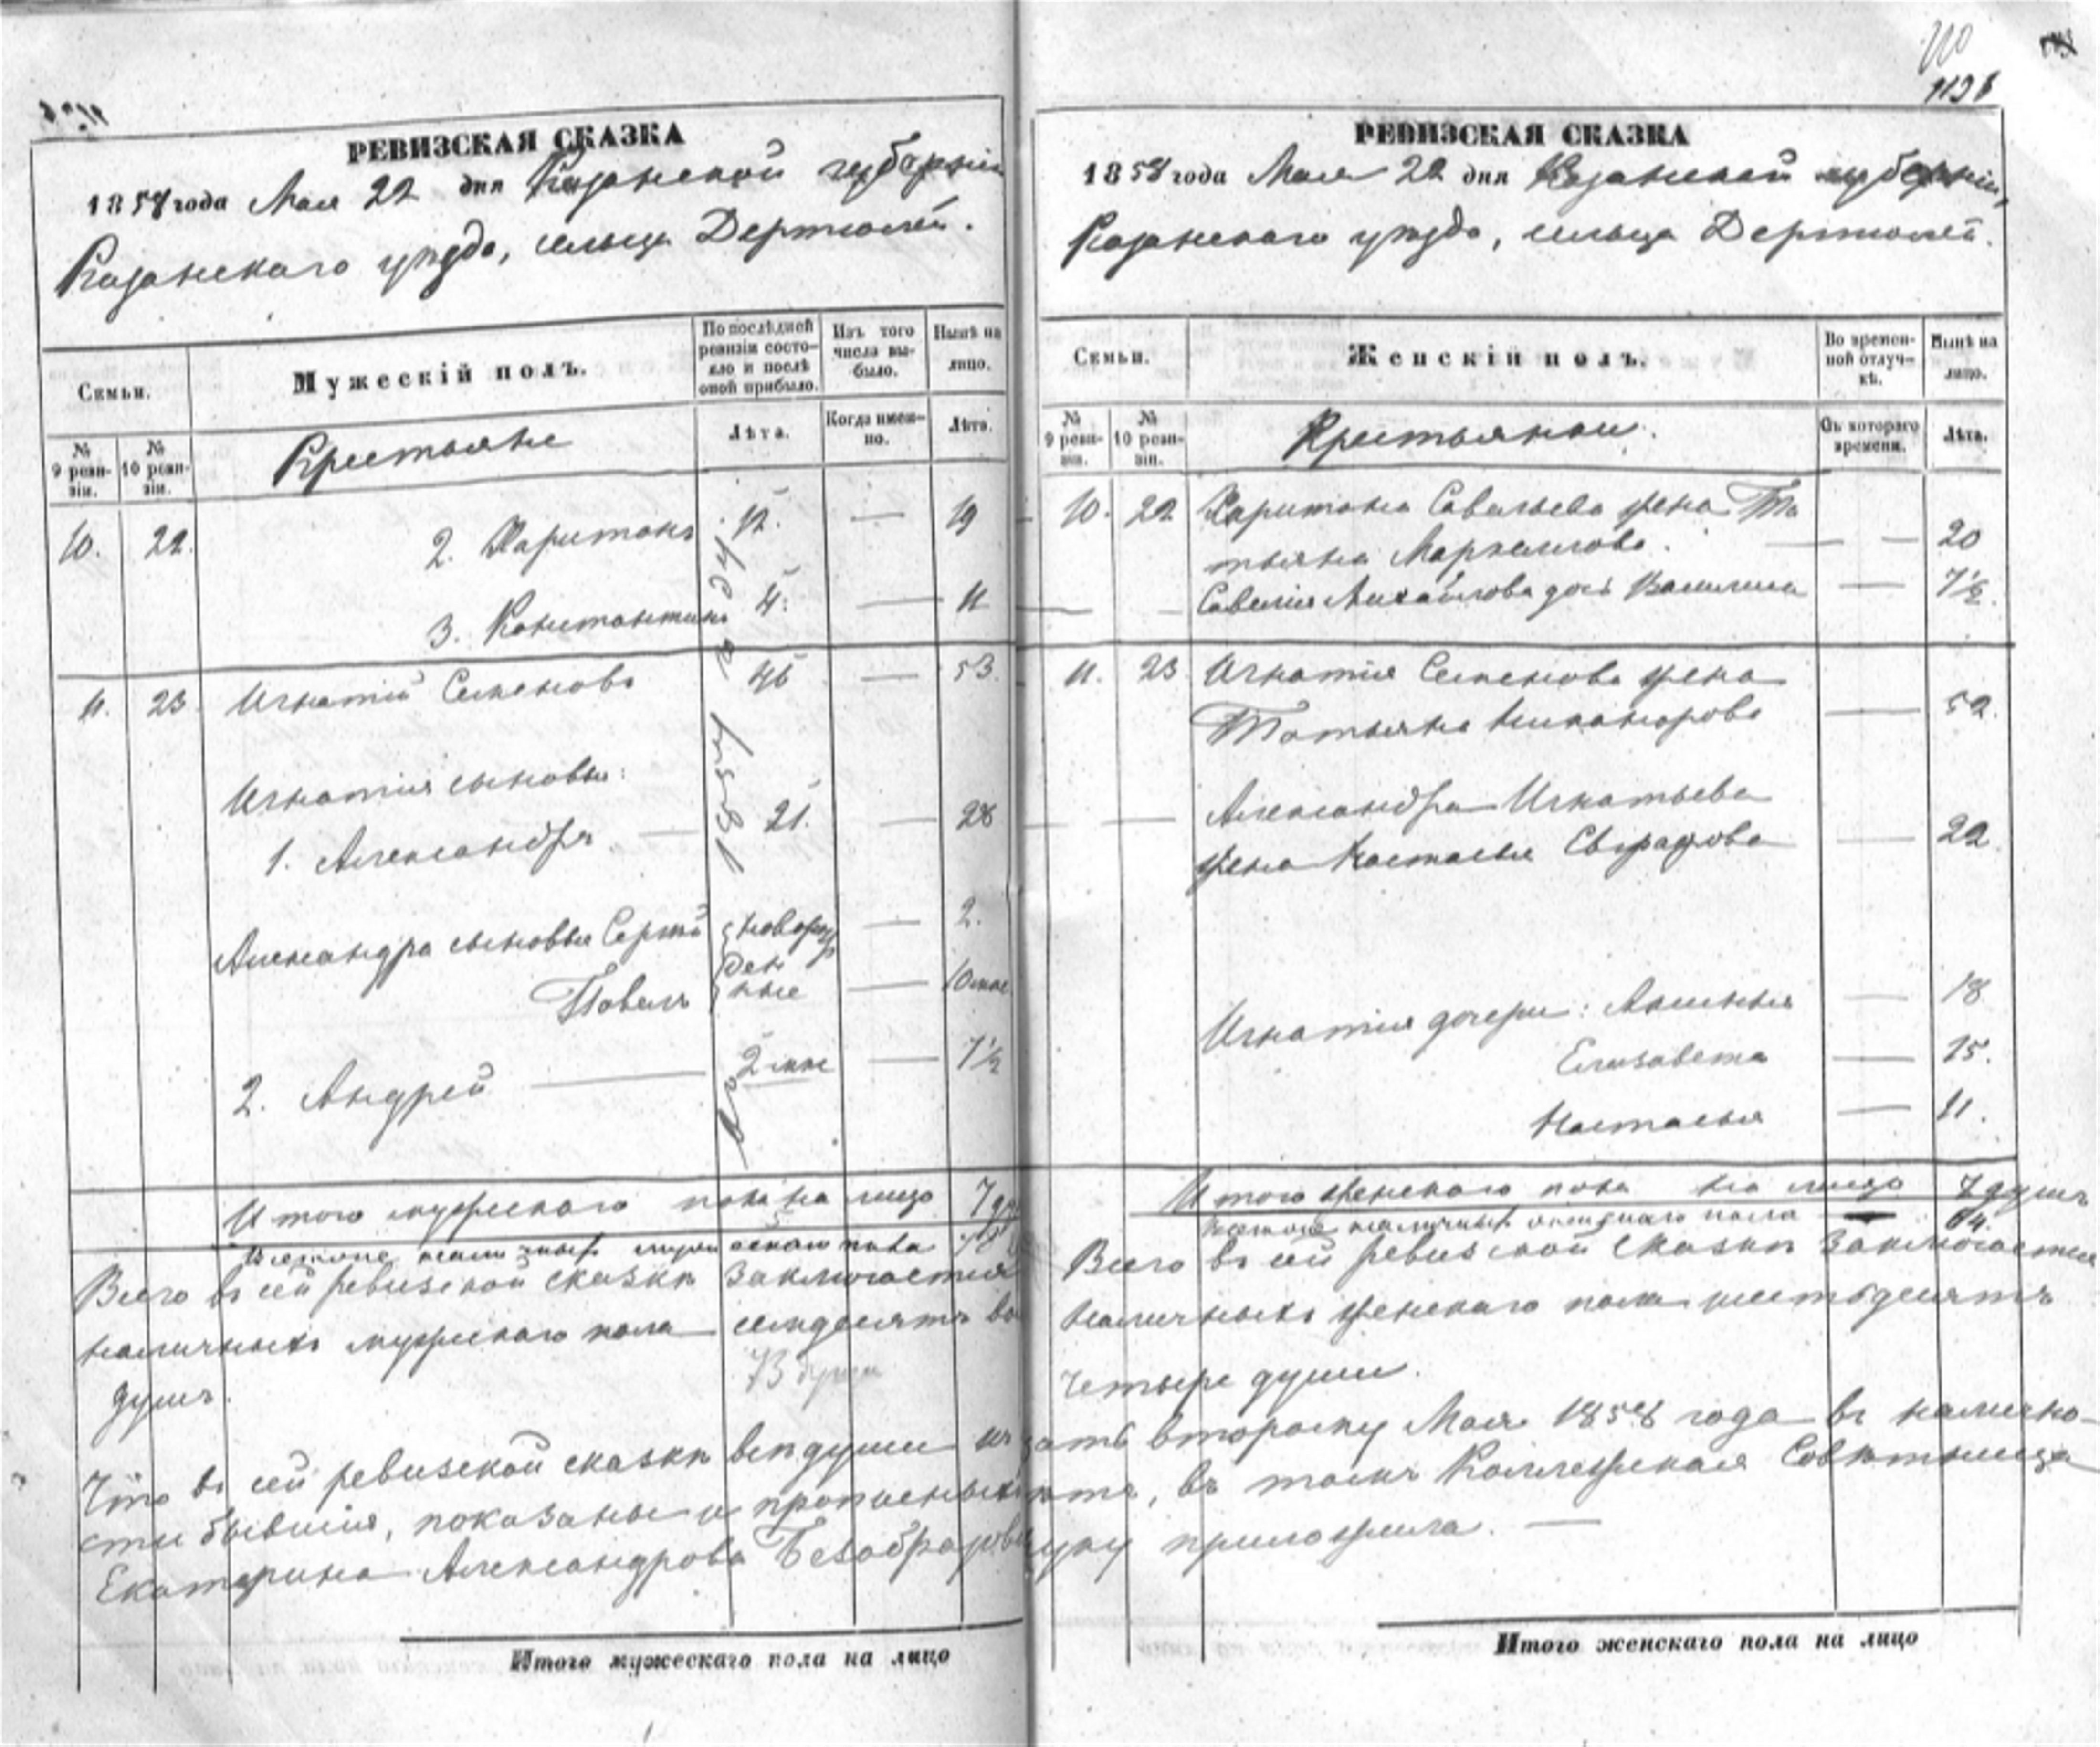 РЕВИЗСКАЯ СКАЗКА
1858 года Мая 22 дня Казанской губерніи
Казанскаго уѣзда, сельца Дертюлей.
Семьи.
Мужескій полъ.
По послѣдней ревизіи состояло и послѣ оной прибыло.
Изъ того числа выбыло.
Нынѣ на лицо.
№ 9 ревизіи.
№ 10 ревизіи.
Крестьяне
Лѣта.
Когда именно.
Лѣта.
10. 22. 2. Харитонъ 12. — 19
3. Константинъ 4. — 11
11. 23. Игнатій Семеновъ 46 — 53.
Игнатія сыновья:
1. Александръ — 21. — 28
Александра сыновья Сергѣй новорожденные — 2.
Павелъ — 10 мѣс
2. Андрей — 2 мѣс — 7½
въ 1857 году
Итого мужескаго пола на лицо 7
Всего въ сей ревизской сказкѣ заключается
наличныхъ мужескаго пола семдесятъ
душъ.
73 души
РЕВИЗСКАЯ СКАЗКА
1858 года Мая 22 дня Казанской губерніи,
Казанскаго уѣзда, сельца Дертюлей.
Семьи.
Женскій полъ.
Во временной отлучкѣ.
Нынѣ на лицо.
№ 9 ревизіи.
№ 10 ревизіи.
Крестьянки.
Съ котораго времени.
Лѣта.
10. 22 Харитона Савельева жена Та
тьяна Маркелова. — — 20
Савелія Михайлова дочь Василиса — 7½.
11. 23. Игнатія Семенова жена
Татьяна Никанорова — 52.
Александра Игнатьева
жена Настасья Евграфова — 22.
Игнатія дочери: Аксинья — 18
Елизавета — 15.
Настасья — 11.
Итого женскаго пола на лицо 7 душъ
64.
Всего въ сей ревизской сказкѣ заключается
наличныхъ женскаго пола шестьдесятъ
четыре души.
Что въ сей ревизской сказкѣ всѣ души къ второму Мая 1858 года въ налично-
сти бывшія, показаны и прописныхъ нѣтъ, въ томъ Коллежская Совѣтница
Екатерина Александрова Безобразова руку приложила. —
Итого мужескаго пола на лицо
Итого женскаго пола на лицо